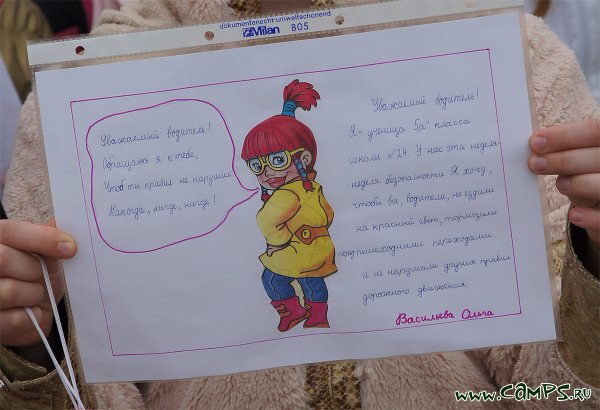 dokumentenecht-umweltschonend
Milan 805
Уважаемый водитель!
Обращаюсь я к тебе,
Чтоб ты правил не нарушил
Никогда, нигде, нигде!
Уважаемый водитель!
Я - ученица 5"а" класса
школы №24. У нас эта неделя-
неделя безопасности. Я хочу,
чтобы вы, водители, не ездили
на красный свет, тормозили
перед пешеходными переходами
и не нарушали других правил
дорожного движения
Васильева Ольга
www.CAMPS.RU